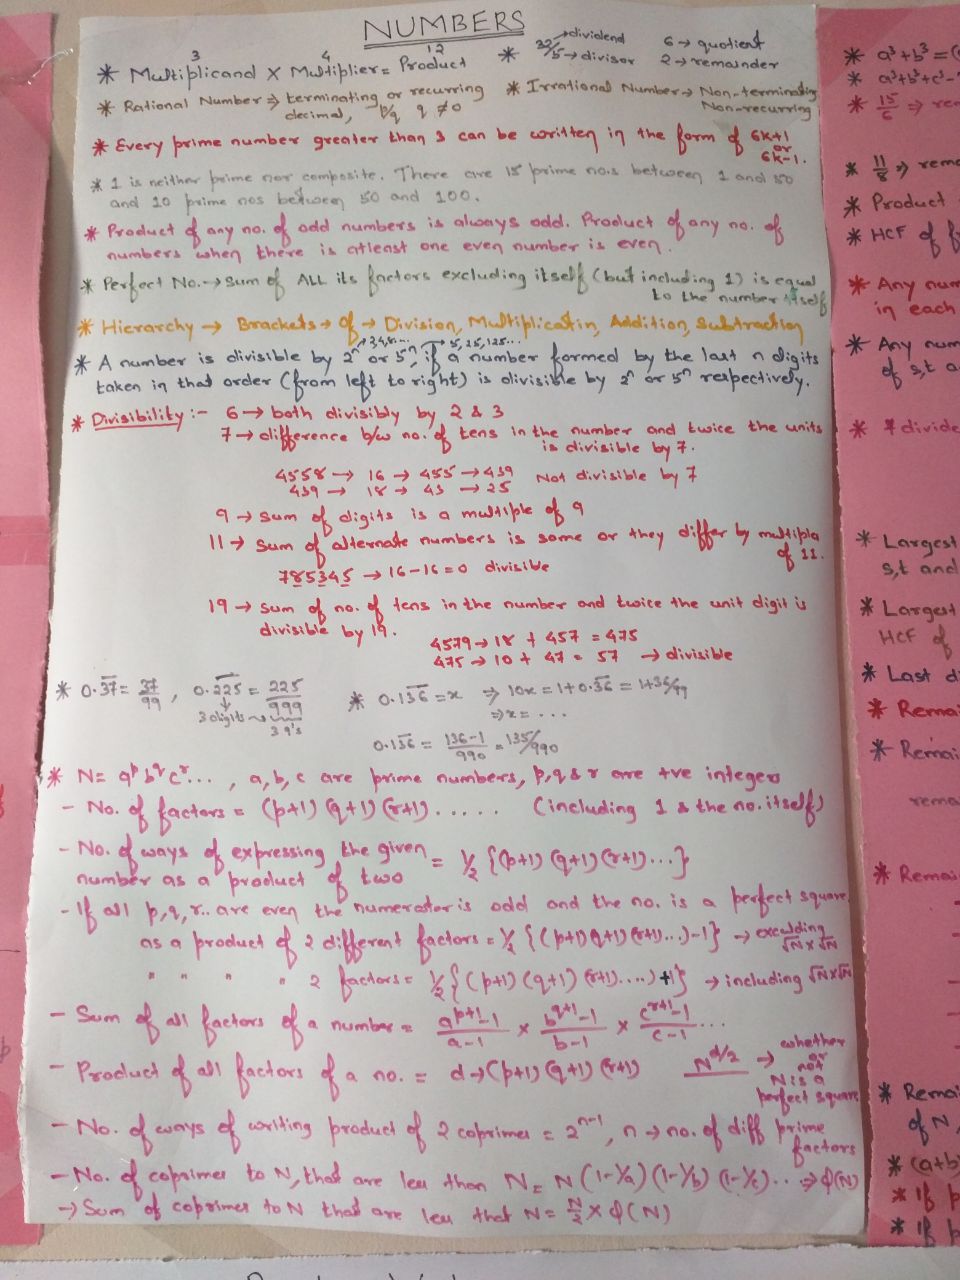 NUMBERS
3 4 12
* Multiplicand × Multiplier = Product
* 32/5 → dividend 6 → quotient
→ divisor 2 → remainder
* Rational Number ⇒ terminating or recurring
decimal, p/q q ≠ 0
* Irrational Number → Non-terminating
Non-recurring
* Every prime number greater than 3 can be written in the form of 6k+1
or
6k-1.
* 1 is neither prime nor composite. There are 15 prime nos between 1 and 50
and 10 prime nos between 50 and 100.
* Product of any no. of odd numbers is always odd. Product of any no. of
numbers when there is atleast one even number is even.
* Perfect No. → Sum of ALL its factors excluding itself (but including 1) is equal
to the number itself
* Hierarchy → Brackets → of → Division, Multiplication, Addition, Subtraction
* A number is divisible by 2ⁿ or 5ⁿ, if a number formed by the last n digits
→ 5, 25, 125...
taken in that order (from left to right) is divisible by 2ⁿ or 5ⁿ respectively.
* Divisibility :- 6 → both divisibly by 2 & 3
7 → difference b/w no. of tens in the number and twice the units
is divisible by 7.
4558 → 16 → 455 → 439 Not divisible by 7
439 → 18 → 43 → 25
9 → sum of digits is a multiple of 9
11 → sum of alternate numbers is same or they differ by multiple
of 11.
785345 → 16-16=0 divisible
19 → sum of no. of tens in the number and twice the unit digit is
divisible by 19.
4579 → 18 + 457 = 475
475 → 10 + 47 = 57 → divisible
* 0.37 = 37/99 , 0.225 = 225/999
3 digits → 3 9's
* 0.136 = x ⇒ 10x = 1+0.36 = 1+36/99
⇒ x = ...
0.136 = 136-1/990 = 135/990
* N = aᵖ b^q cʳ... , a, b, c are prime numbers, p, q & r are +ve integers
- No. of factors = (p+1) (q+1) (r+1) ..... (including 1 & the no. itself)
- No. of ways of expressing the given
number as a product of two = ½ {(p+1) (q+1) (r+1)...}
- If all p, q, r.. are even the numerator is odd and the no. is a perfect square
as a product of 2 different factors = ½ {(p+1)(q+1)(r+1)...)-1} → exculding
√N × √N
" " " " 2 factors = ½ {(p+1) (q+1) (r+1)....)+1} → including √N×√N
- Sum of all factors of a number = a^(p+1)-1/a-1 × b^(q+1)-1/b-1 × c^(r+1)-1/c-1 ...
- Product of all factors of a no. = d → (p+1) (q+1) (r+1) N^(d/2) → whether
or
not
N is a
perfect square
- No. of ways of writing product of 2 coprimes = 2ⁿ⁻¹, n → no. of diff prime
factors
- No. of coprimes to N, that are less than N = N (1-1/a) (1-1/b) (1-1/c)... ⇒ φ(N)
→ Sum of coprimes to N that are less that N = N/2 × φ(N)
* a³+b³ = (
* a³+b³+c³-
* 15/6 ⇒ rem
* 11/8 ⇒ rema
* Product
* HCF of f
* Any num
in each
* Any num
of s,t a
* divide
* Largest
s,t and
* Largest
HCF of
* Last d
* Remai
* Remai
rema
* Remai
* Remai
of N,
* (a+b)
* If p
* If p